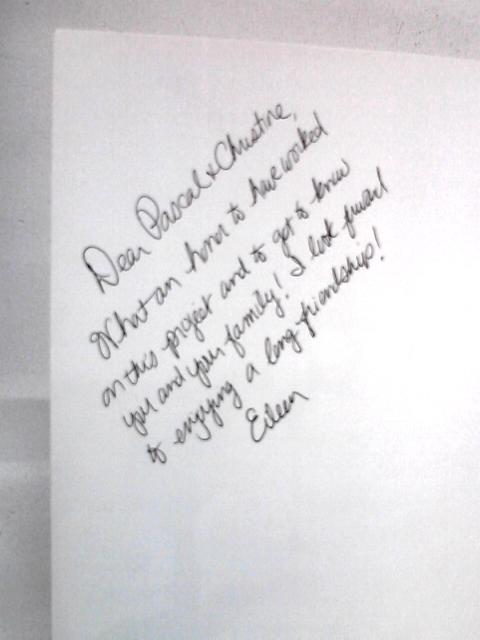 Dear Pascal & Christine,
What an honor to have worked
on this project and to get to know
you and your family! I look forward
to enjoying a long friendship!
Eileen